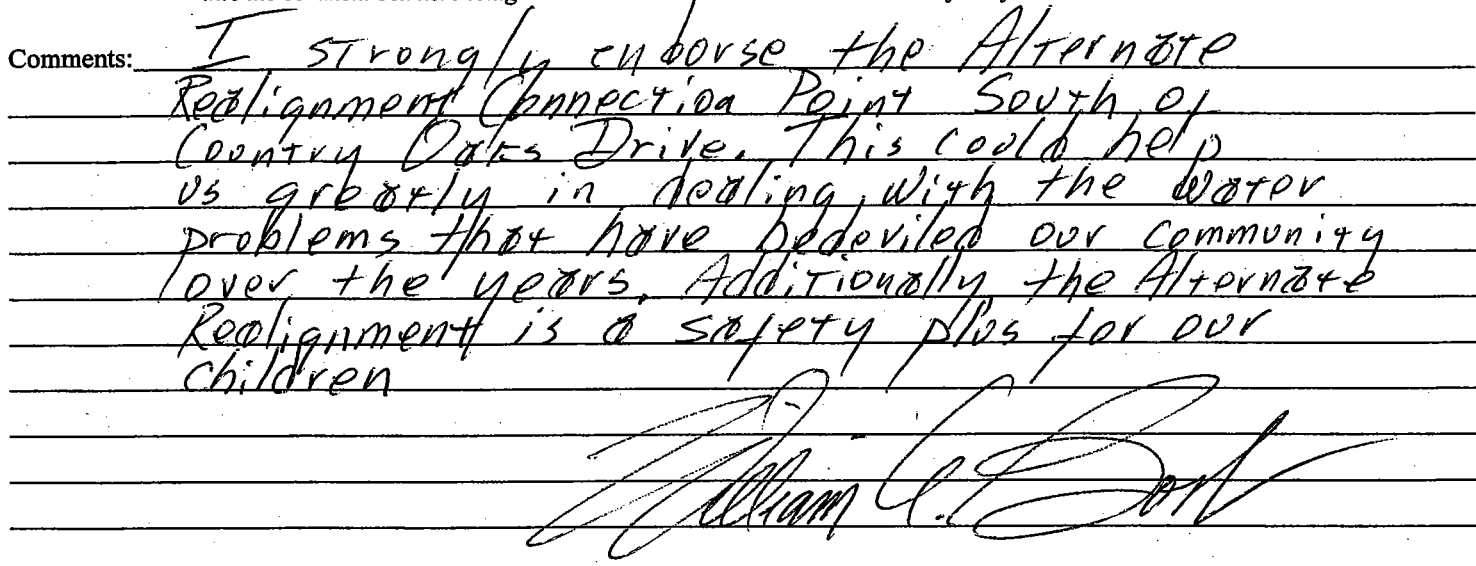 Comments: I strongly endorse the Alternate
Realignment Connection Point South of
Country Oaks Drive. This could help
us greatly in dealing with the water
problems that have bedeviled our community
over the years. Additionally the Alternate
Realignment is a safety plus for our
children
William